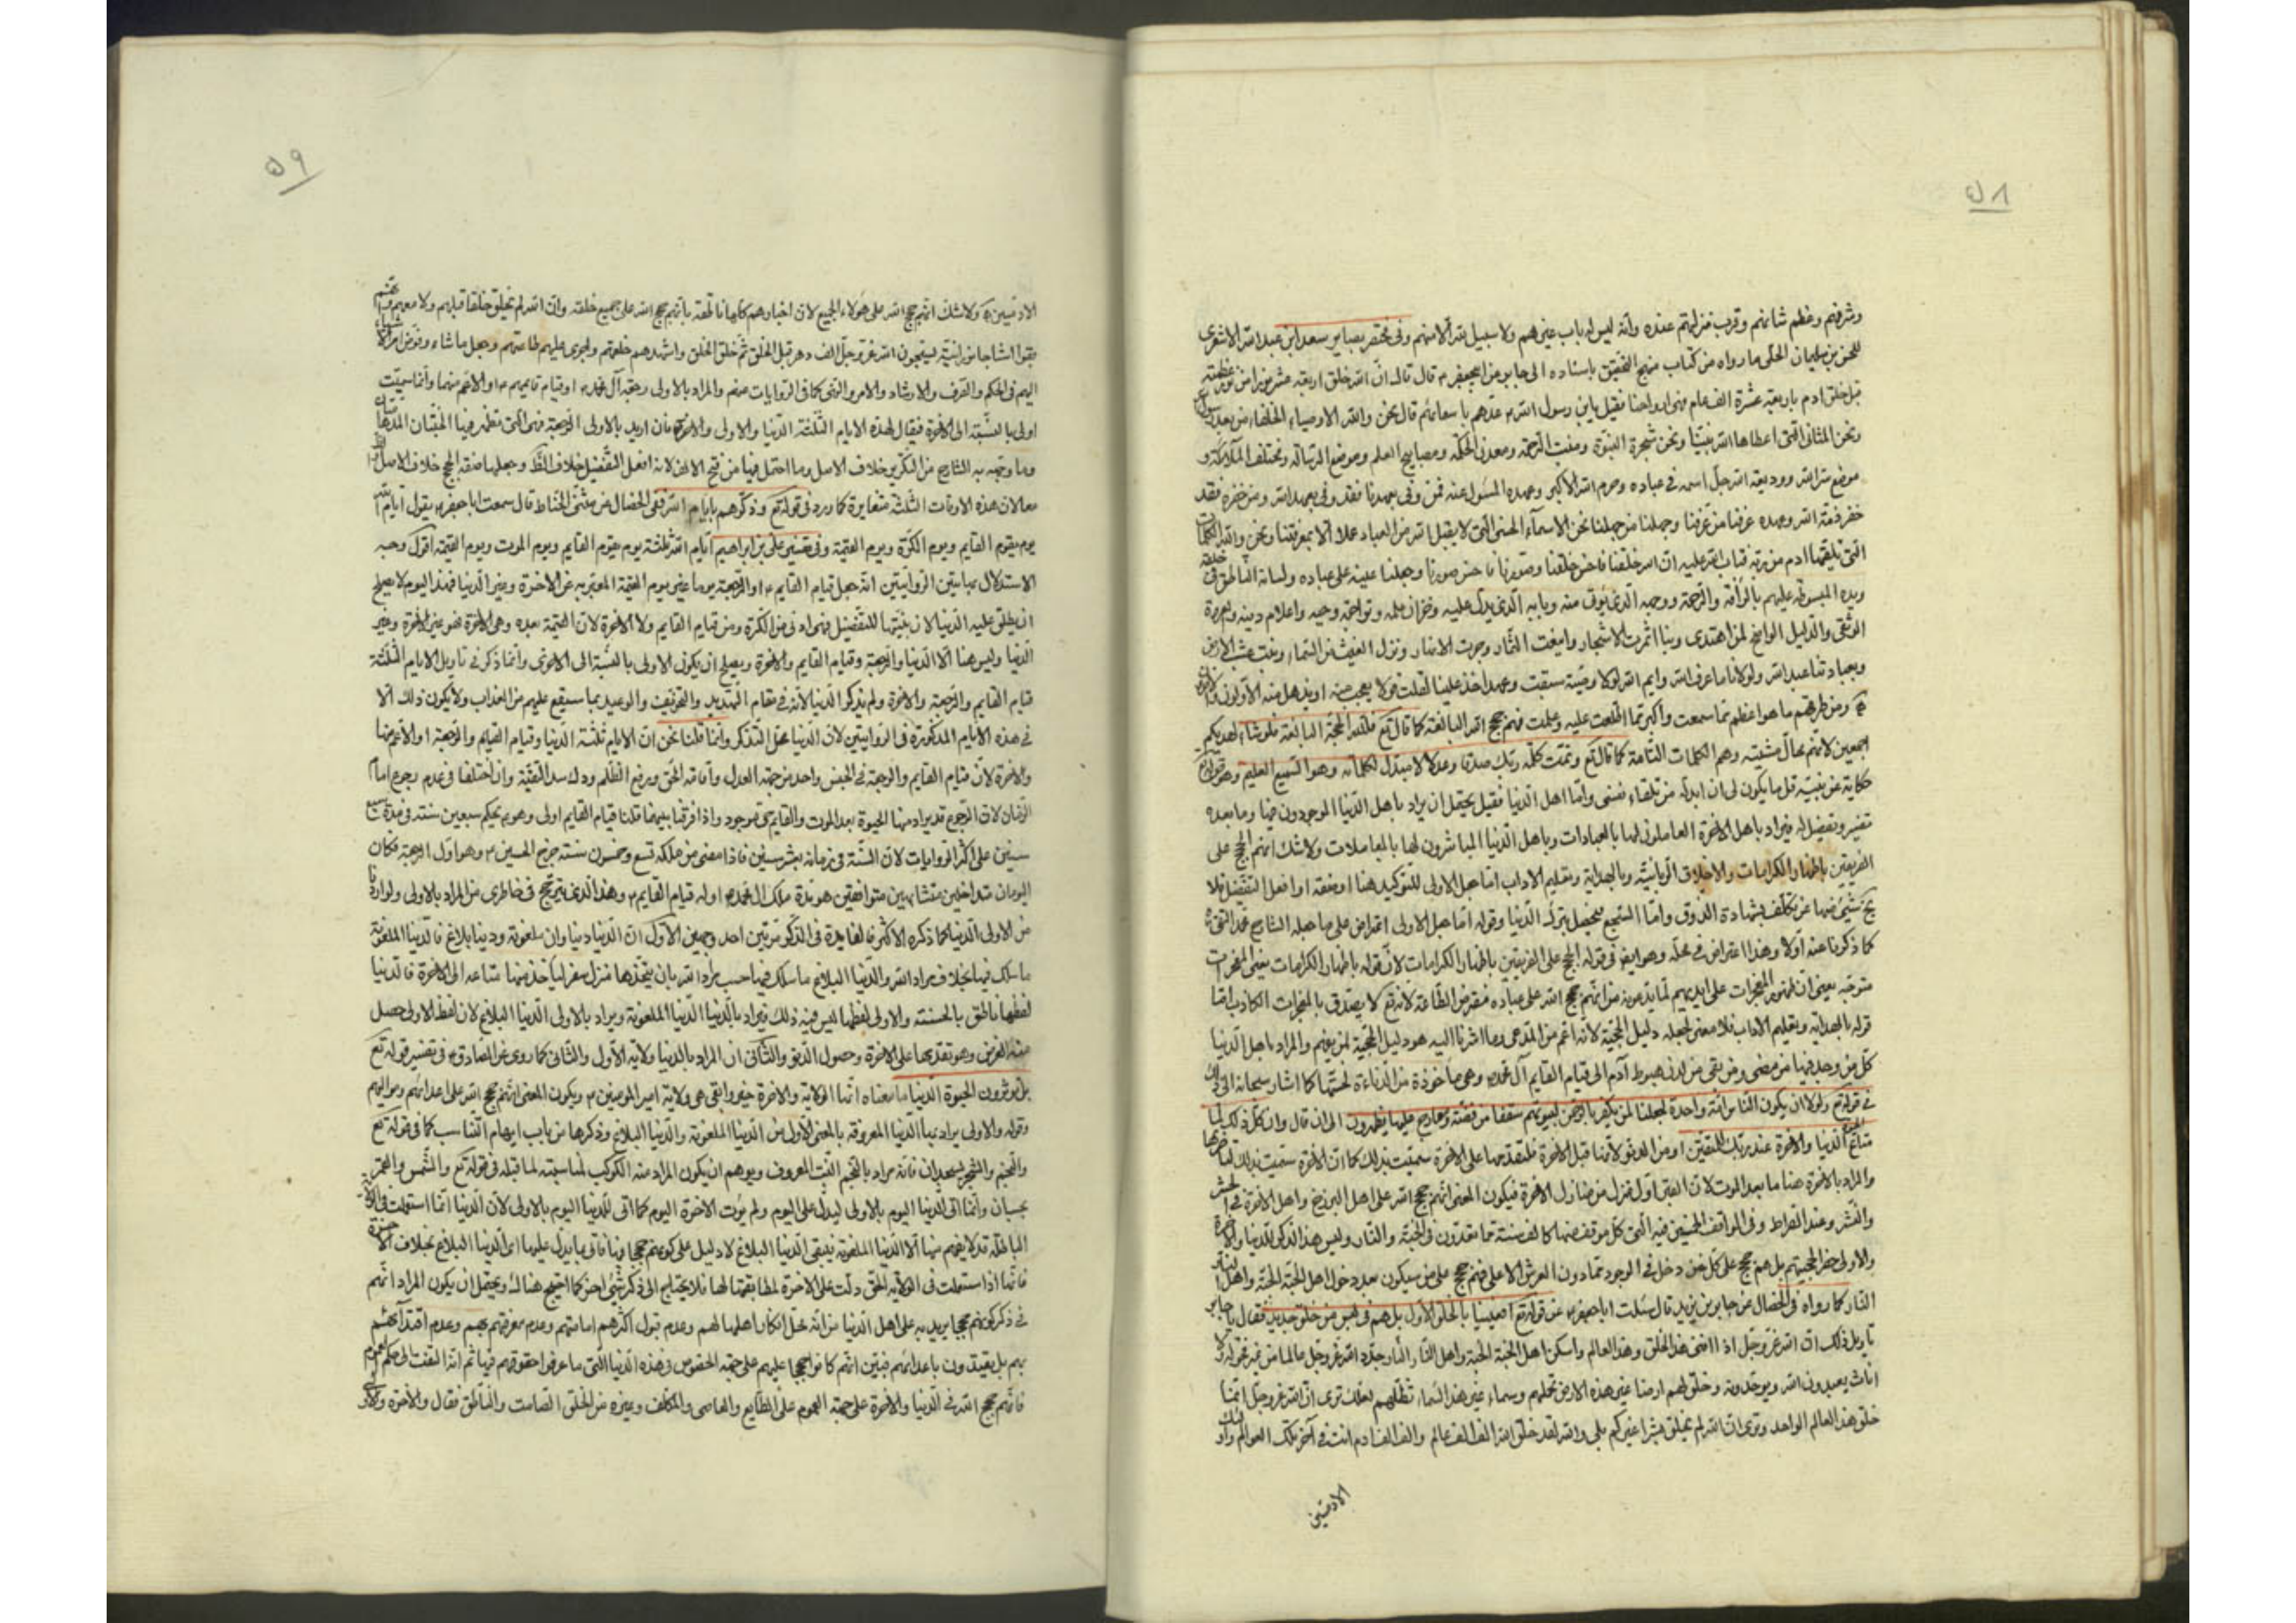 ٥٨
وشرفهم وعظم شانهم وقرب منزلتهم عنده وأنه ليس له باب غيرهم ولا سبيل لله الا منهم وفى مختصر بصاير سعد ابن عبدالله الاشعرى
للحسن بن سليمان الحلّى ما رواه من كتاب منهج التحقيق باسناده الى جابر عن ابيجعفر ع قال قال انّ الله خلق اربعة عشر نورا من نور عظمته
قبل خلق ادم باربعة عشرة الف عام فهى ارواحنا فقيل يابن رسول الله ص عدّهم باسمائهم قال نحن والله الاوصياء الخلفاء من بعد رسول الله
ونحن المثانى التى اعطاها الله نبيّنا ونحن شجرة النبوّة ومنبت الرّحمة ومعدن الحكمة ومصابيح العلم وموضع الرسالة ومختلف الملائكة و
موضع سرّ الله ووديعة الله جلّ اسمه فى عباده وحرم الله الاكبر وعهده المسئول عنه فمن وفى بعهدنا فقد وفى بعهد الله ومن خفره فقد
خفر ذمّة الله وعهده عرفنا من عرفنا وجهلنا من جهلنا نحن الاسمآء الحسنى التى لا يقبل الله من العباد عملا الّا بمعرفتنا ونحن والله الكلمات
التى تلقيها ادم من ربّه فتاب الله عليه انّ الله خلقنا فاحسن خلقنا وصوّرنا فاحسن صورنا وجعلنا عينه على عباده ولسانه الناطق فى خلقه
ويده المبسوطة عليهم بالرأفة والرّحمة ووجهه الّذى يؤتى منه وبابه الّذى يدلّ عليه وخزّان علمه وتراجمة وحيه واعلام دينه والعروة
الوثقى والدليل الواضح لمن اهتدى وبنا اثمرت الاشجار واينعت الثمار وجرت الانهار ونزل الغيث من السّماء ونبت عشب الارض
وبعبادتنا عبد الله ولولانا ما عرف الله وايم الله لولا وصيّة سبقت وعهد اخذ علينا لقلت قولا يعجب منه او يذهل منه الاوّلون والاخرون
ومن طرقهم ما هو اعظم ممّا سمعت واكبر ممّا اطّلعت عليه وعلمت فهم حجج الله البالغة كما قال تع فلله الحجّة البالغة فلو شاء لهديكم
اجمعين لانّهم محالّ مشيّته وهم الكلمات التامة كما قال تع وتمّت كلمة ربّك صدقا وعدلا لا مبدّل لكلماته وهو السميع العليم وهو قوله تع
حكاية عن نبيّه قل ما يكون لى ان ابدّله من تلقاء نفسى وامّا اهل الدّنيا فقيل يحتمل ان يراد باهل الدّنيا الموجودون فيها وما بعده
تفسير وتفصيل له فيراد باهل الاخرة العاملون لها بالعبادات وباهل الدّنيا المباشرون لها بالمعاملات ولاشك انهم الحجج على
الفريقين باظهار الكرامات والاخلاق الربانيّة وبالهداية وتعليم الاداب امّا جعل الاولى للتوكيد هنا او صفة او افعل التفضيل فلا
يخ شيئ منها عن تكلّف بشهادة الذوق وامّا السّجع فيحصل بترك الدّنيا وقوله امّا جعل الاولى اعتراض على ما جعله الشارح محمّد التقى
كما ذكرنا عنه اوّلا وهذا اعتراض فى محلّه وهو ايضا فى قوله الحجج على الفريقين باظهار الكرامات لانّ قوله باظهار الكرامات يعنى المعجزات
متوجّه بمعنى ان ظهور المعجزات على ايديهم لما يدّعونه من انّهم حجج الله على عباده مفترض الطاعة لانه تع لا يصدّق بالمعجزات الكاذب امّا
قوله بالهداية وتعليم الاداب فلا معنى لجعله دليل الحجّية لانه اعم من المدّعى وما اشرنا اليه هو دليل الحجيّة لمن يفهم والمراد باهل الدّنيا
كلّ من وجد فيها من مضى ومن بقى من لدن هبوط آدم الى قيام القايم آل محمد وهى مأخوذة من الدناءة لخسّتها كما اشار سبحانه الى ذلك
فى قوله تع ولولا ان يكون الناس امّة واحدة لجعلنا لمن يكفر بالرحمن لبيوتهم سقفا من فضّة ومعارج عليها يظهرون الى ان قال وان كلّ ذلك لمّا
متاع الحيوة الدّنيا والاخرة عند ربّك للمتّقين او من الدنوّ لانّها قبل الاخرة فلتقدّمها على الاخرة سمّيت بذلك كما انّ الاخرة سمّيت بذلك لتاخّرها
والمراد بالاخرة هنا ما بعد الموت لانّ القبر اوّل منزل من منازل الاخرة فيكون المعنى انّهم حجج الله على اهل البرزخ واهل الاخرة فى الحشر
والنّشر وعند الصراط وفى المواقف الخمسين فيه الّتى كلّ موقف منها كالف سنة مما تعدّون فى الجنّة والنّار وليس هذا الذكر للدّنيا والاخرة
والاولى حصر الحجيتهم بل هم حجج على كلّ من دخل فى الوجود ممّا دون العرش الاعلى فهم حجج على من سيكون بعد دخول اهل الجنّة الجنّة واهل النار
النّار كما رواه فى الخصال عن جابر بن يزيد قال سئلت اباجعفر ع عن قوله تع افعيينا بالخلق الاوّل بل هم فى لبس من خلق جديد فقال يا جابر
تاويل ذلك انّ الله عزّ وجلّ اذا افنى هذا الخلق وهذا العالم واسكن اهل الجنّة الجنّة واهل النّار النّار جدّد الله عزّ وجلّ عالما من غير فحولة ولا
اناث يعبدون الله ويوحّدونه وخلق لهم ارضا غير هذه الارض تحملهم وسماء غير هذا السّماء تظلّهم لعلّك ترى انّ الله عزّ وجلّ انّما
خلق هذا العالم الواحد وترى انّ الله لم يخلق بشرا غيركم بلى والله لقد خلق الله الف الف عالم والف الف ادم انت فى آخر تلك العوالم واولئك
الادميّين
٥٩
الادميّين ولاشكّ انّهم حجج الله على هؤلاء الجميع لانّ اخبارهم كلّها ناطقة بانّهم حجج الله على جميع خلقه وانّ الله لم يخلق خلقا قبلهم ولا معهم
بقوا اشباحا نورانيّة يسبّحون الله عزّ وجلّ الف دهر قبل الخلق ثمّ خلق الخلق واشهدهم خلقهم واجرى عليهم طاعتهم وجعل ما شاء وفوّض امر الاشياء
اليهم فى الحكم والتصرف والارشاد والامر والنهى كما فى الرّوايات منهم والمراد بالاولى رجعة آل محمد ع او قيام قايمهم ع او الاعمّ منهما وانّما سمّيت
اولى بالنسبة الى الاخرة فيقال لهذه الايام الثّلثة الدّنيا والاولى والاخرة فان اريد بالاولى الرّجعة فهى الّتى تظهر فيها الجنّتان المدهامّتان
وما وجّهه به الشارح من التّكرير خلاف الاصل وما احتمل فيها من فتح الالف لانه افعل التّفضيل خلاف الظ وجعلها صفة الحجج خلاف الاصل
معا لانّ هذه الاوقات الثّلثة متغايرة كما ورد فى قوله تع وذكّرهم بايّام الله ففى الخصال عن مثنّى الحنّاط قال سمعت اباجعفر ع يقول ايّام الله
يوم يقوم القايم ويوم الكرّة ويوم القيمة وفى تفسير على بن ابراهيم ايّام الله ثلثة يوم يقوم القايم ويوم الموت ويوم القيمة اقول وجه
الاستدلال بهاتين الروايتين انّه جعل قيام القايم ع او الرّجعة يوما غير يوم القيمة المعبّر به عن الاخرة وغير الدّنيا فهذا اليوم لا يصلح
ان يطلق عليه الدّنيا لانّ بنيتها للتفضيل فهى ادنى من الكرّة ومن قيام القايم ولا الاخرة لانّ القيمة بعده وهى الاخرة فهو غير الاخرة وغير
الدّنيا وليس هنا الّا الدّنيا والرّجعة وقيام القايم والاخرة ويصلح ان يكون الاولى بالنّسبة الى الاخرى وانّما ذكر فى تاويل الايام الثّلثة
قيام القايم والرّجعة والاخرة ولم يذكر الدّنيا لانّه فى مقام التّهديد والتخويف والوعيد بما سيقع عليهم من العذاب ولا يكون ذلك الّا
فى هذه الايام المذكورة فى الروايتين لانّ الدّنيا محلّ التذكّر وانّما قلنا نحن انّ الايام ثلثة الدّنيا وقيام القايم والرّجعة او الاعمّ منهما
والاخرة لانّ قيام القايم والرجعة فى الجنس واحد من جهة العدل واقامة الحقّ ورفع الظّلم ودك سدّ التقيّة وان اختلفا فى عدم رجوع امام
الزّمان لانّ الرّجوع قد يراد منها الحيوة بعد الموت والقايم حى موجود واذا فرّقنا بينهما قلنا قيام القايم اولى وهو يحكم سبعين سنة فى مدة سبع
سنين على اكثر الروايات لانّ السّنة فى زمانه بعشر سنين فاذا مضى من ملكه تسع وخمسون سنة خرج الحسين ع وهو اوّل الرجعة فكان
اليومان متداخلين متشابهين متوافقين هو مدّة ملك ال محمد ع اوله قيام القايم ع وهذا الّذى يترجّح فى خاطرى من المراد بالاولى ولو اردنا
من الاولى الدّنيا كما ذكره الاكثر فالفايدة فى الذّكر مرّتين احد وجهين الاوّل انّ الدّنيا دنياوان ملعونة ودنيا بلاغ فالدنيا الملعونة
ما سلك فيها بخلاف مراد الله والدّنيا البلاغ ما سلك فيها حسب مراد الله بان يتّخذها منزل سفر ليأخذ منها متاعه الى الاخرة فالدنيا
لفظها بالحق بالحسنة والاولى لفظها ليس فيه ذلك فيراد بالدّنيا الدّنيا الملعونة ويراد بالاولى الدّنيا البلاغ لانّ لفظ الاولى حصل
منه الغرض وهو تقديمها على الاخرة وحصول الدنيّو والثّانى انّ المراد بالدنيا ولاية الاوّل والثّانى كما روى عن الصادق ع فى تفسير قوله تع
بل تؤثرون الحيوة الدّنيا ما معناه انّها الولاية والاخرة خير وابقى هى ولاية امير المؤمنين ع ويكون المعنى انّهم حجج الله على اعدائهم ومواليهم
وقوله والاولى يراد بها الدّنيا المعروفة بالمعنى الاوّل من الدّنيا الملعونة والدّنيا البلاغ وذكرها من باب ايهام التناسب كما فى قوله تع
والنّجم والشّجر يسجدان فانّه يراد بالنّجم النّبت المعروف ويوهم ان يكون المراد منه الكوكب لمناسبته لما قبله فى قوله تع والشّمس والقمر
بحسبان وانّما اتى الدّنيا اليوم بالاولى ليدلّ على اليوم ولم يؤت الاخرة اليوم كما اتى للدّنيا اليوم بالاولى لانّ الدّنيا انّما استعملت فى الولاية
الباطلة قد لا يفهم منها الّا الدّنيا الملعونة فيبقى الدّنيا البلاغ لا دليل على كونهم حججا فيها فاتى بما يدلّ عليها اى الدّنيا البلاغ بخلاف الاخرة
فانّها اذا استعملت فى الولاية الحقّ دلّت على الاخرة لمطابقتها لها فلا يحتاج الى ذكر شيئ اخر كما احتيج هناك ويحتمل ان يكون المراد انّهم
فى ذكر كونهم حججا يريد به على اهل الدّنيا من انّه محلّ انكار اهلها لهم وعدم قبول اكثرهم امامتهم وعدم معرفتهم بهم وعدم اقتدآئهم
بهم بل يقتدون باعدائهم فبيّن انّهم كانوا حججا عليهم على جهة الخصوص فى هذه الدّنيا الّتى ما عرفوا حقوقهم فيها ثم انّه التفت الى حكم العموم
فانّهم حجج الله فى الدّنيا والاخرة على جهة العموم على الطايع والعاصى والمكلّف وغيره من الخلق الصّامت والنّاطق فقال والاخرة والاولى